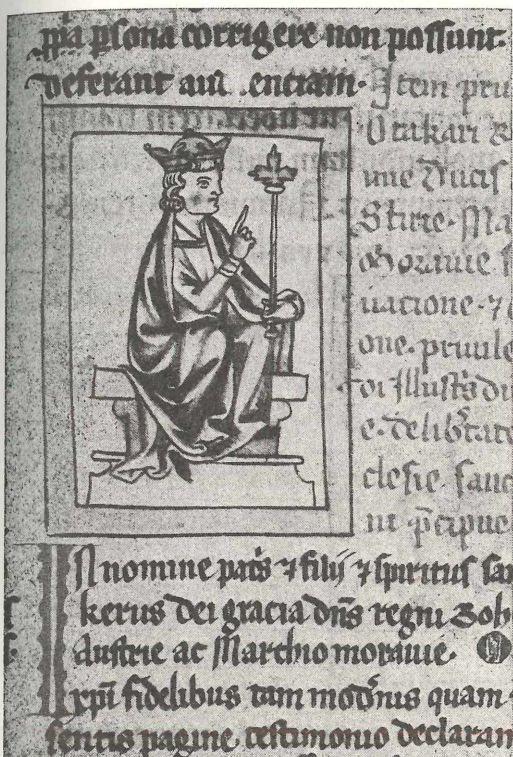 ppia psona corrigere non possunt.
deferant aut .entiam.
Item pru
Otakari R
une Ducis
Stirie. Ma
Morauie
uacione. ⁊
one. priuile
oi Illustris du
e. deliberate
clesie sanc
nt precipue
In nomine patris ⁊ filij ⁊ spiritus san
kerus dei gracia dns regni Boh
Austrie ac Marchio morauie.
xpi fidelibus tam modnis quam
sentis pagine. testimonio declaran